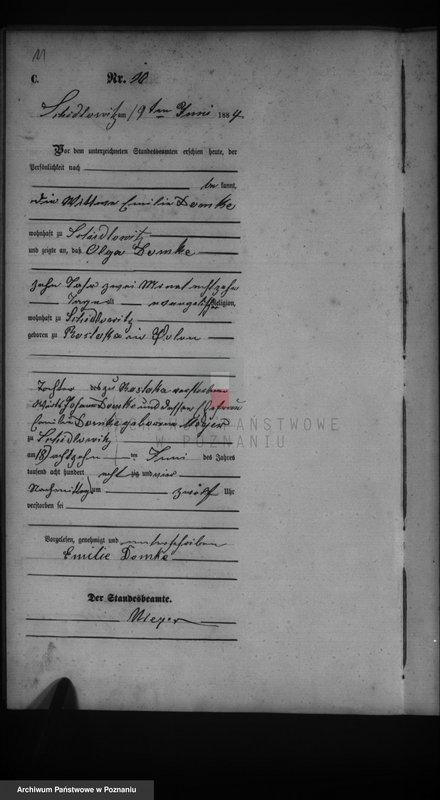 11
C.
Nr. 20
Schidlowitz am 19ten Juni 1884.
Vor dem unterzeichneten Standesbeamten erschien heute, der
Persönlichkeit nach
be kannt,
die Wittwe Emilie Domke
wohnhaft zu Schidlowitz
und zeigte an, daß Olga Domke
zehn Jahr zwei Monat achtzehn
Tage alt evangelischer Religion,
wohnhaft zu Schidlowitz
geboren zu in Polen
Tochter des zu verstorbenen
Wirths Johann Domke und dessen Ehefrau
Emilie Domke geborenen Meyer
zu Schidlowitz
am 18 achtzehn ten Juni des Jahres
tausend acht hundert acht zig und vier
Nachmittags um zwölf Uhr
verstorben sei
Vorgelesen, genehmigt und unterschrieben
Emilie Domke
Der Standesbeamte.
Meyer
ARCHIWUM PAŃSTWOWE
W POZNANIU
Archiwum Państwowe w Poznaniu